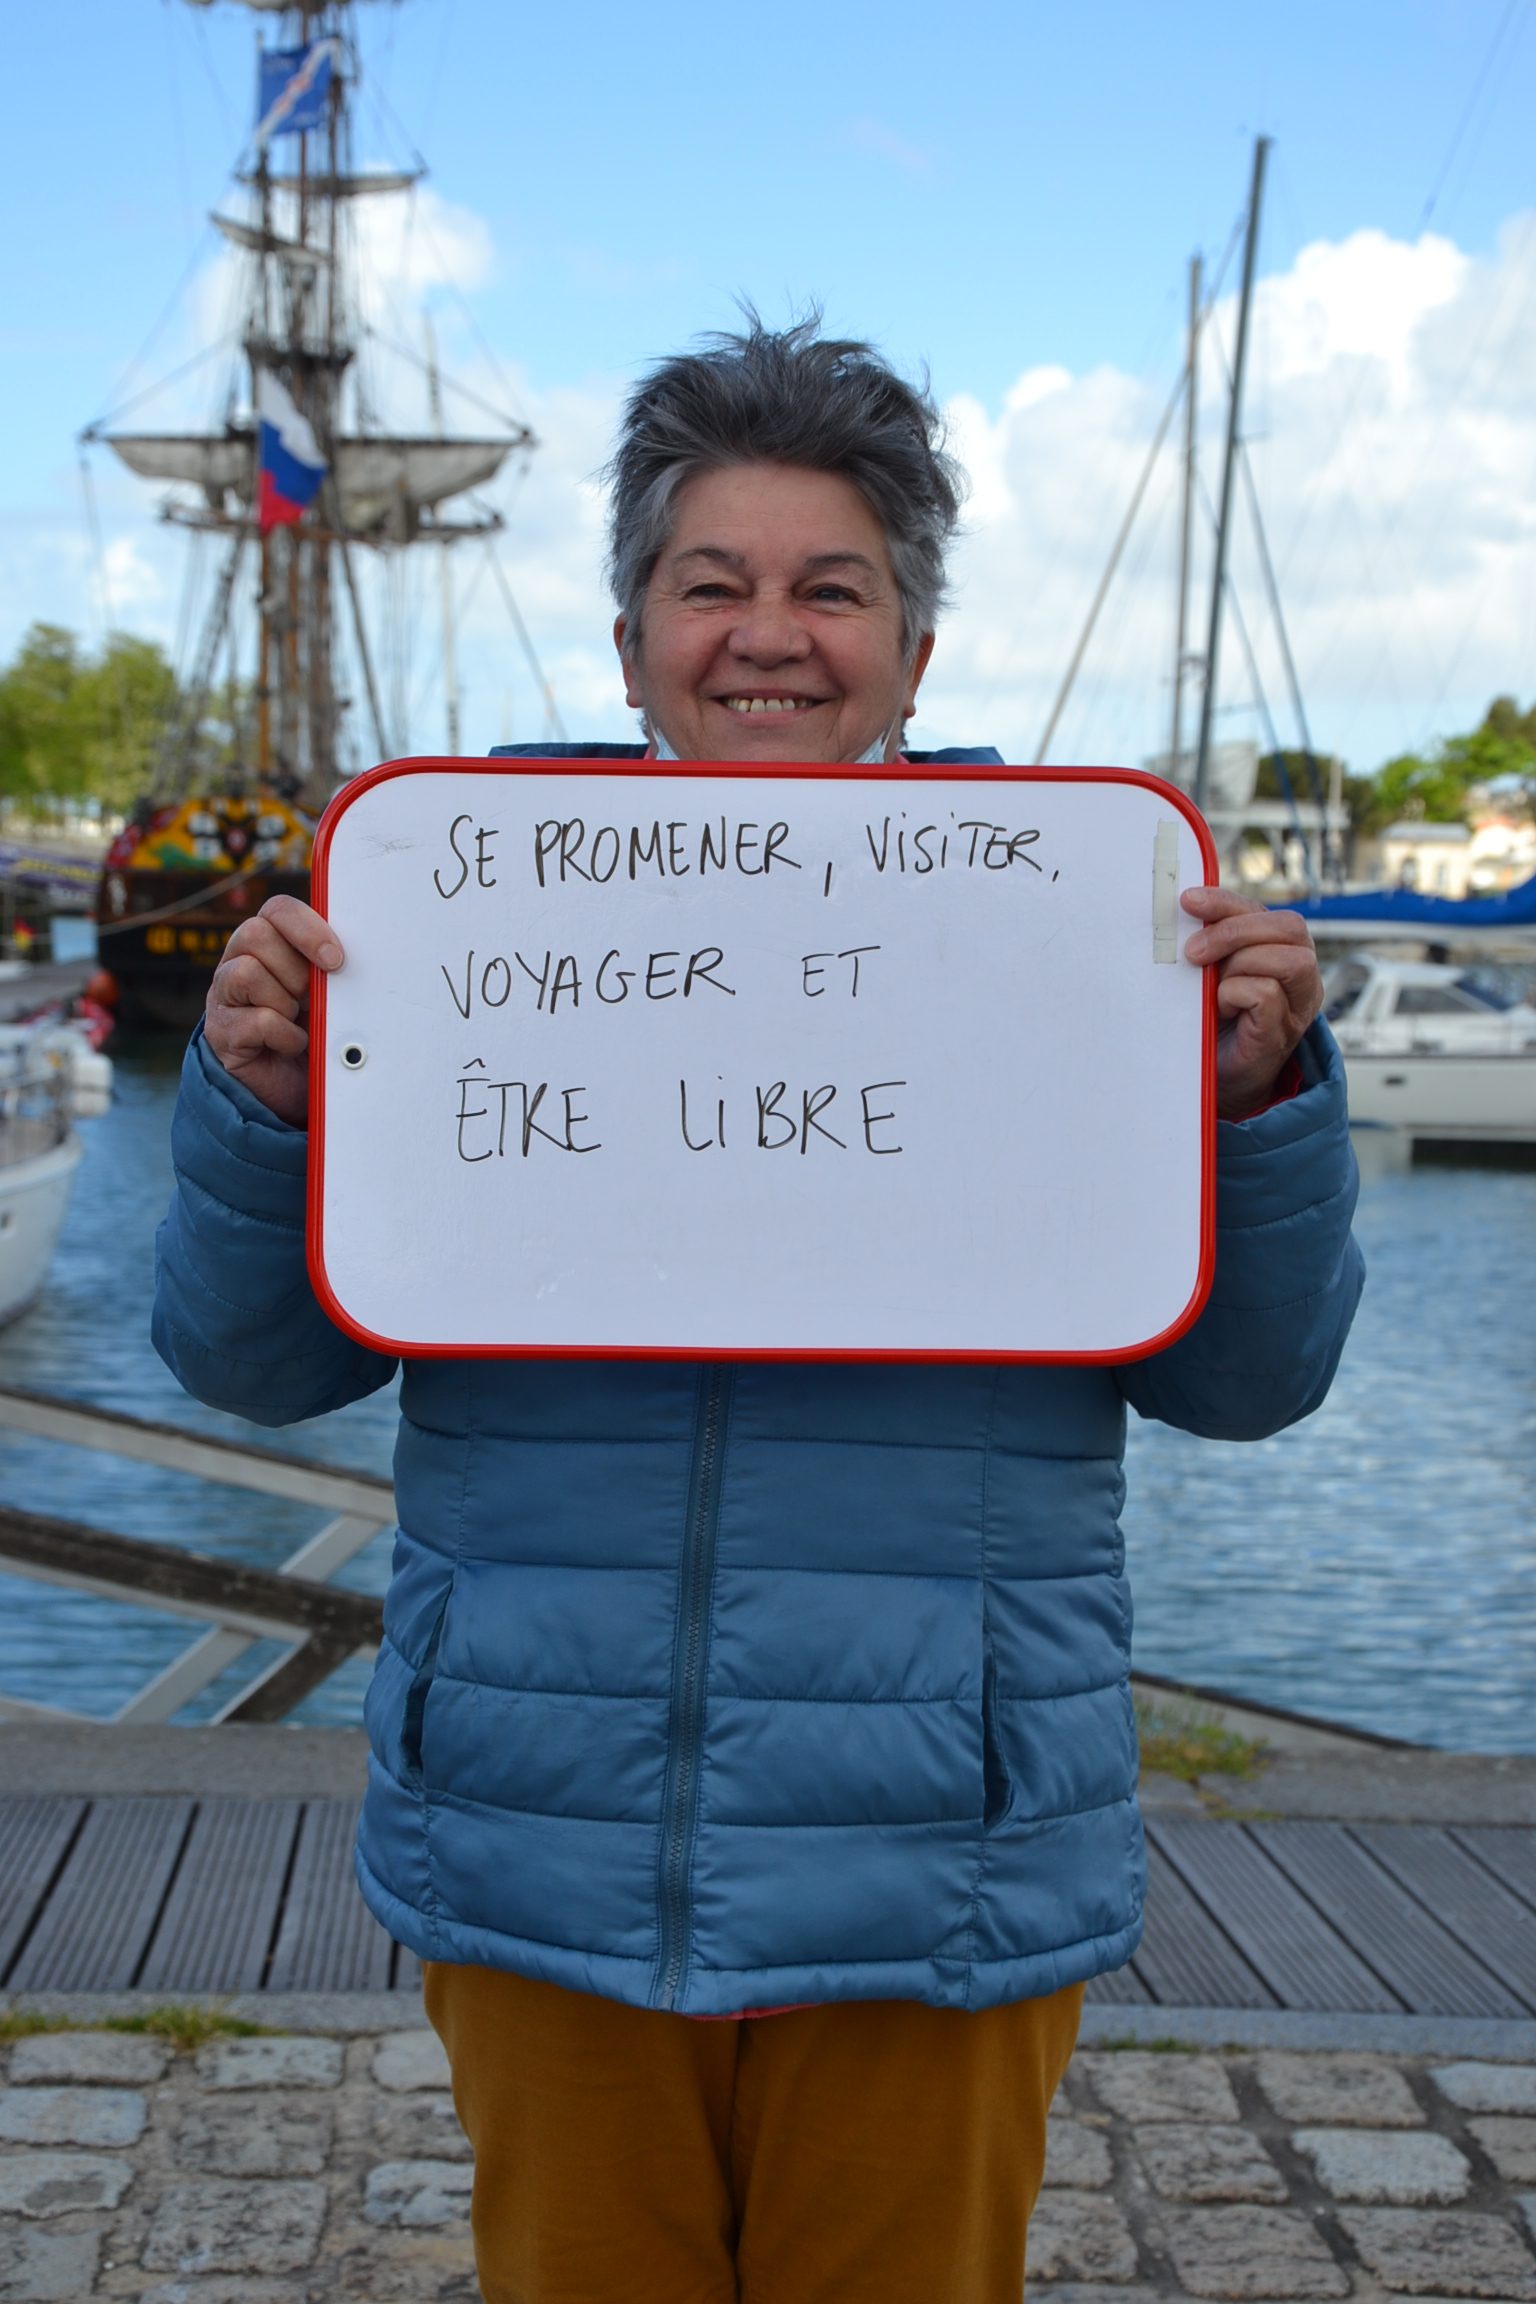 SE PROMENER, VISITER,
VOYAGER ET
ÊTRE LIBRE